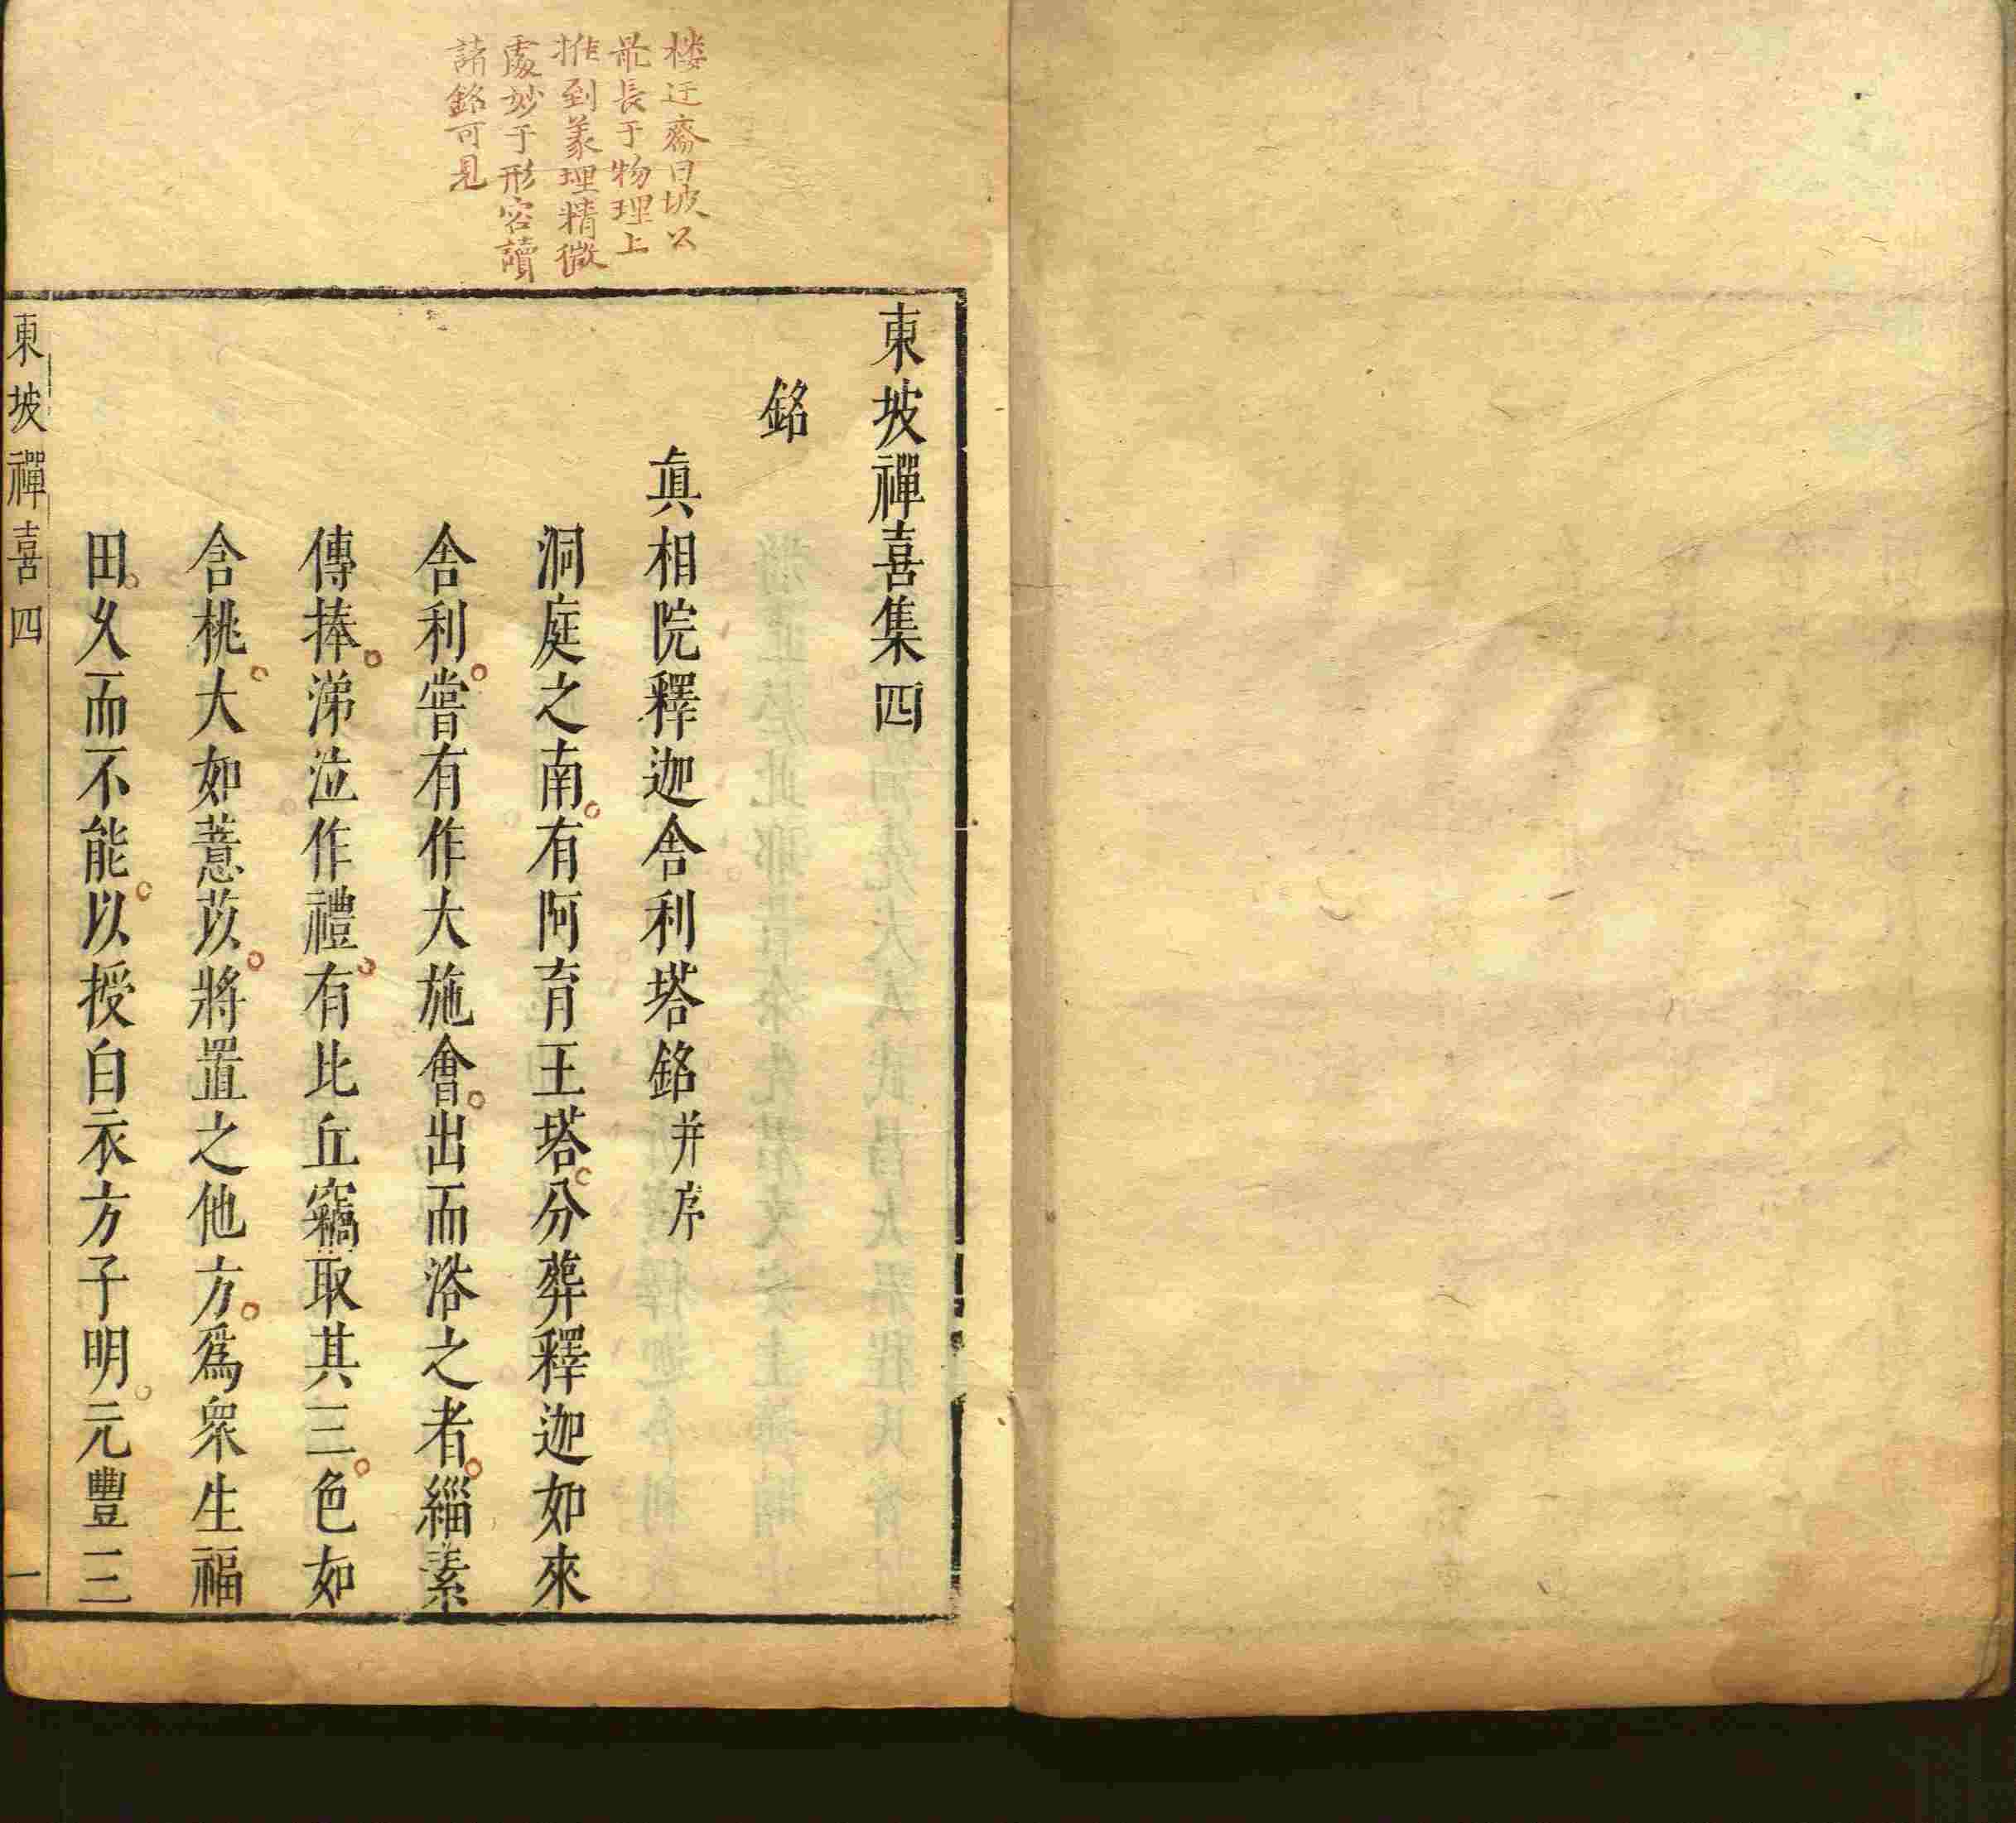 樓迂齋曰坡公
最長于物理上
推到義理精微
處妙于形容讀
諸銘可見
東坡禪喜集四
銘
真相院釋迦舍利塔銘并序
洞庭之南有阿育王塔分葬釋迦如來
舍利嘗有作大施會出而浴之者緇素
傳捧涕泣作禮有比丘竊取其三色如
含桃大如薏苡將置之他方爲眾生福
田久而不能以授白衣方子明元豐三
東坡禪喜四
一